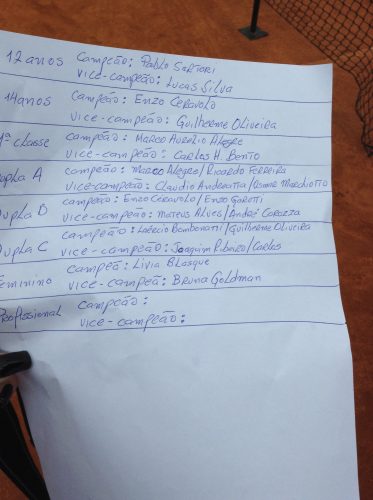 12 anos Campeão: Pablo Sartori
Vice-campeão: Lucas Silva
14 anos Campeão: Enzo Ceravolo
Vice-campeão: Guilherme Oliveira
1ª classe Campeão: Marco Aurélio Alegre
Vice-campeão: Carlos H. Bento
upla A Campeão: Marco Alegre/Ricardo Ferreira
Vice-campeão: Claudio Anderatta/Osmar Marchiotto
upla B Campeão: Enzo Ceravolo/Enzo Garotti
Vice-campeão: Mateus Alves/André Coraza
upla C Campeão: Laércio /Guilherme Oliveira
Vice-campeão: Joaquim Ribeiro/Carlos
eminino Campeã: Livia Blasque
Vice-campeã: Bruna Goldman
rofissional Campeão:
Vice-campeão: